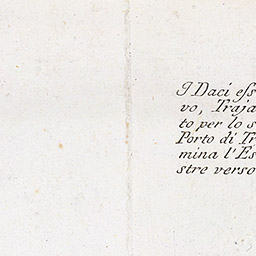 I Daci eſs
vo, Traja
to per lo s
Porto di Tr
mina l'Es
stre verso